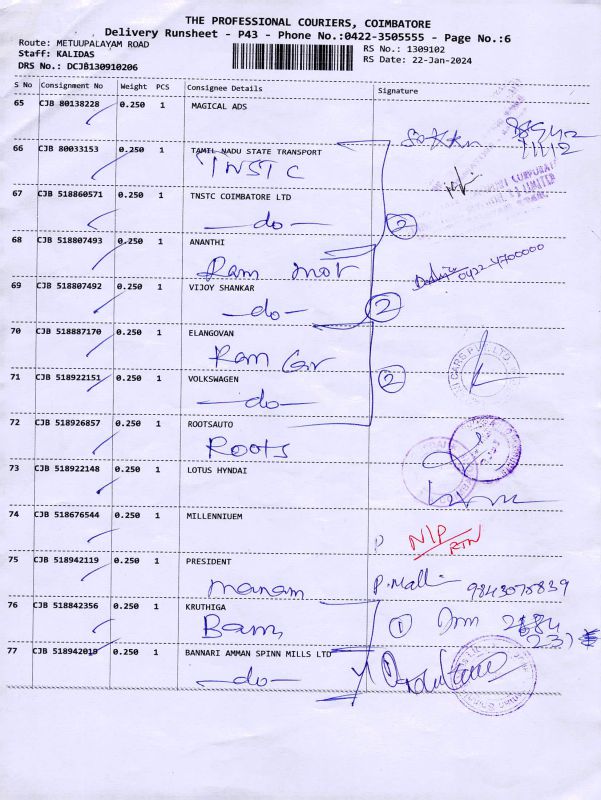 THE PROFESSIONAL COURIERS, COIMBATORE
Delivery Runsheet - P43 - Phone No.:0422-3505555 - Page No.:6
Route: METUUPALAYAM ROAD
RS No.: 1309102
Staff: KALIDAS
RS Date: 22-Jan-2024
DRS No.: DCJB130910206
S No Consignment No Weight PCS Consignee Details Signature
65 CJB 80138228 0.250 1 MAGICAL ADS
66 CJB 80033153 0.250 1 TAMIL NADU STATE TRANSPORT
TNSTC
67 CJB 518860571 0.250 1 TNSTC COIMBATORE LTD
-do-
2
68 CJB 518807493 0.250 1 ANANTHI
Ram mot
0422-4700000
69 CJB 518807492 0.250 1 VIJOY SHANKAR
-do-
2
70 CJB 518887170 0.250 1 ELANGOVAN
Ram Car
71 CJB 518922151 0.250 1 VOLKSWAGEN
-do-
2
72 CJB 518926857 0.250 1 ROOTSAUTO
Roots
73 CJB 518922148 0.250 1 LOTUS HYNDAI
74 CJB 518676544 0.250 1 MILLENNIUEM
N/P
RTN
75 CJB 518942119 0.250 1 PRESIDENT
manam
P.Malli
76 CJB 518842356 0.250 1 KRUTHIGA
Bam
1
77 CJB 518942019 0.250 1 BANNARI AMMAN SPINN MILLS LTD
-do-